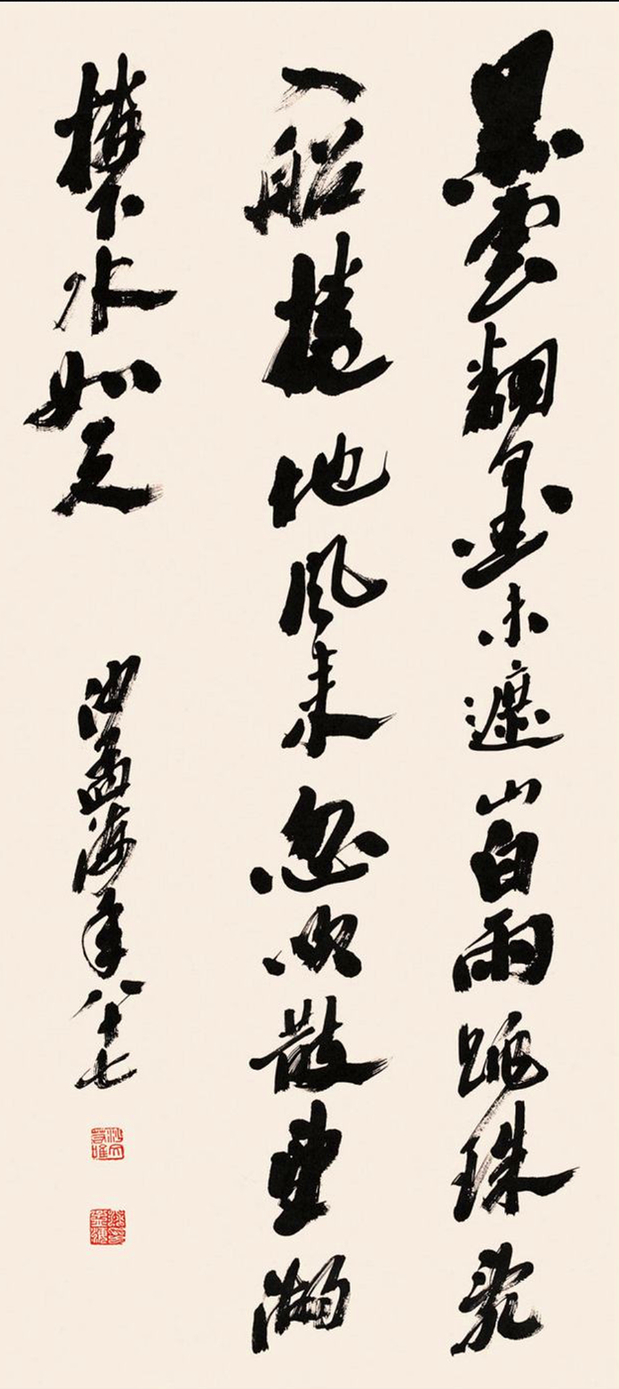 黑雲翻墨未遮山白雨跳珠亂
入船捲地風來忽吹散望湖
樓下水如天 沙孟海年八十七